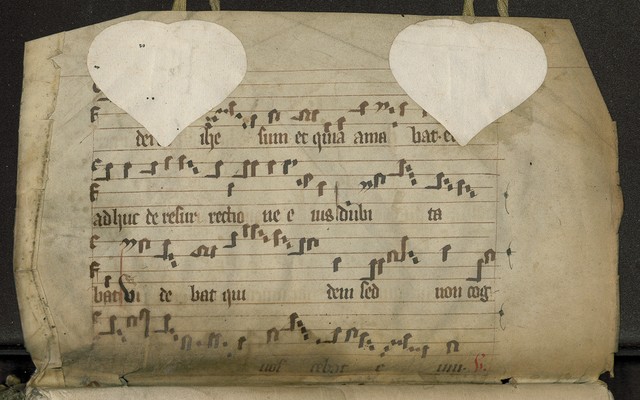 ihe sum et quia ama bat e
adhuc de resur rectio ne e ius dubi ta
bat Vi de bat qui dem sed non cog
nos cebat e um. V.